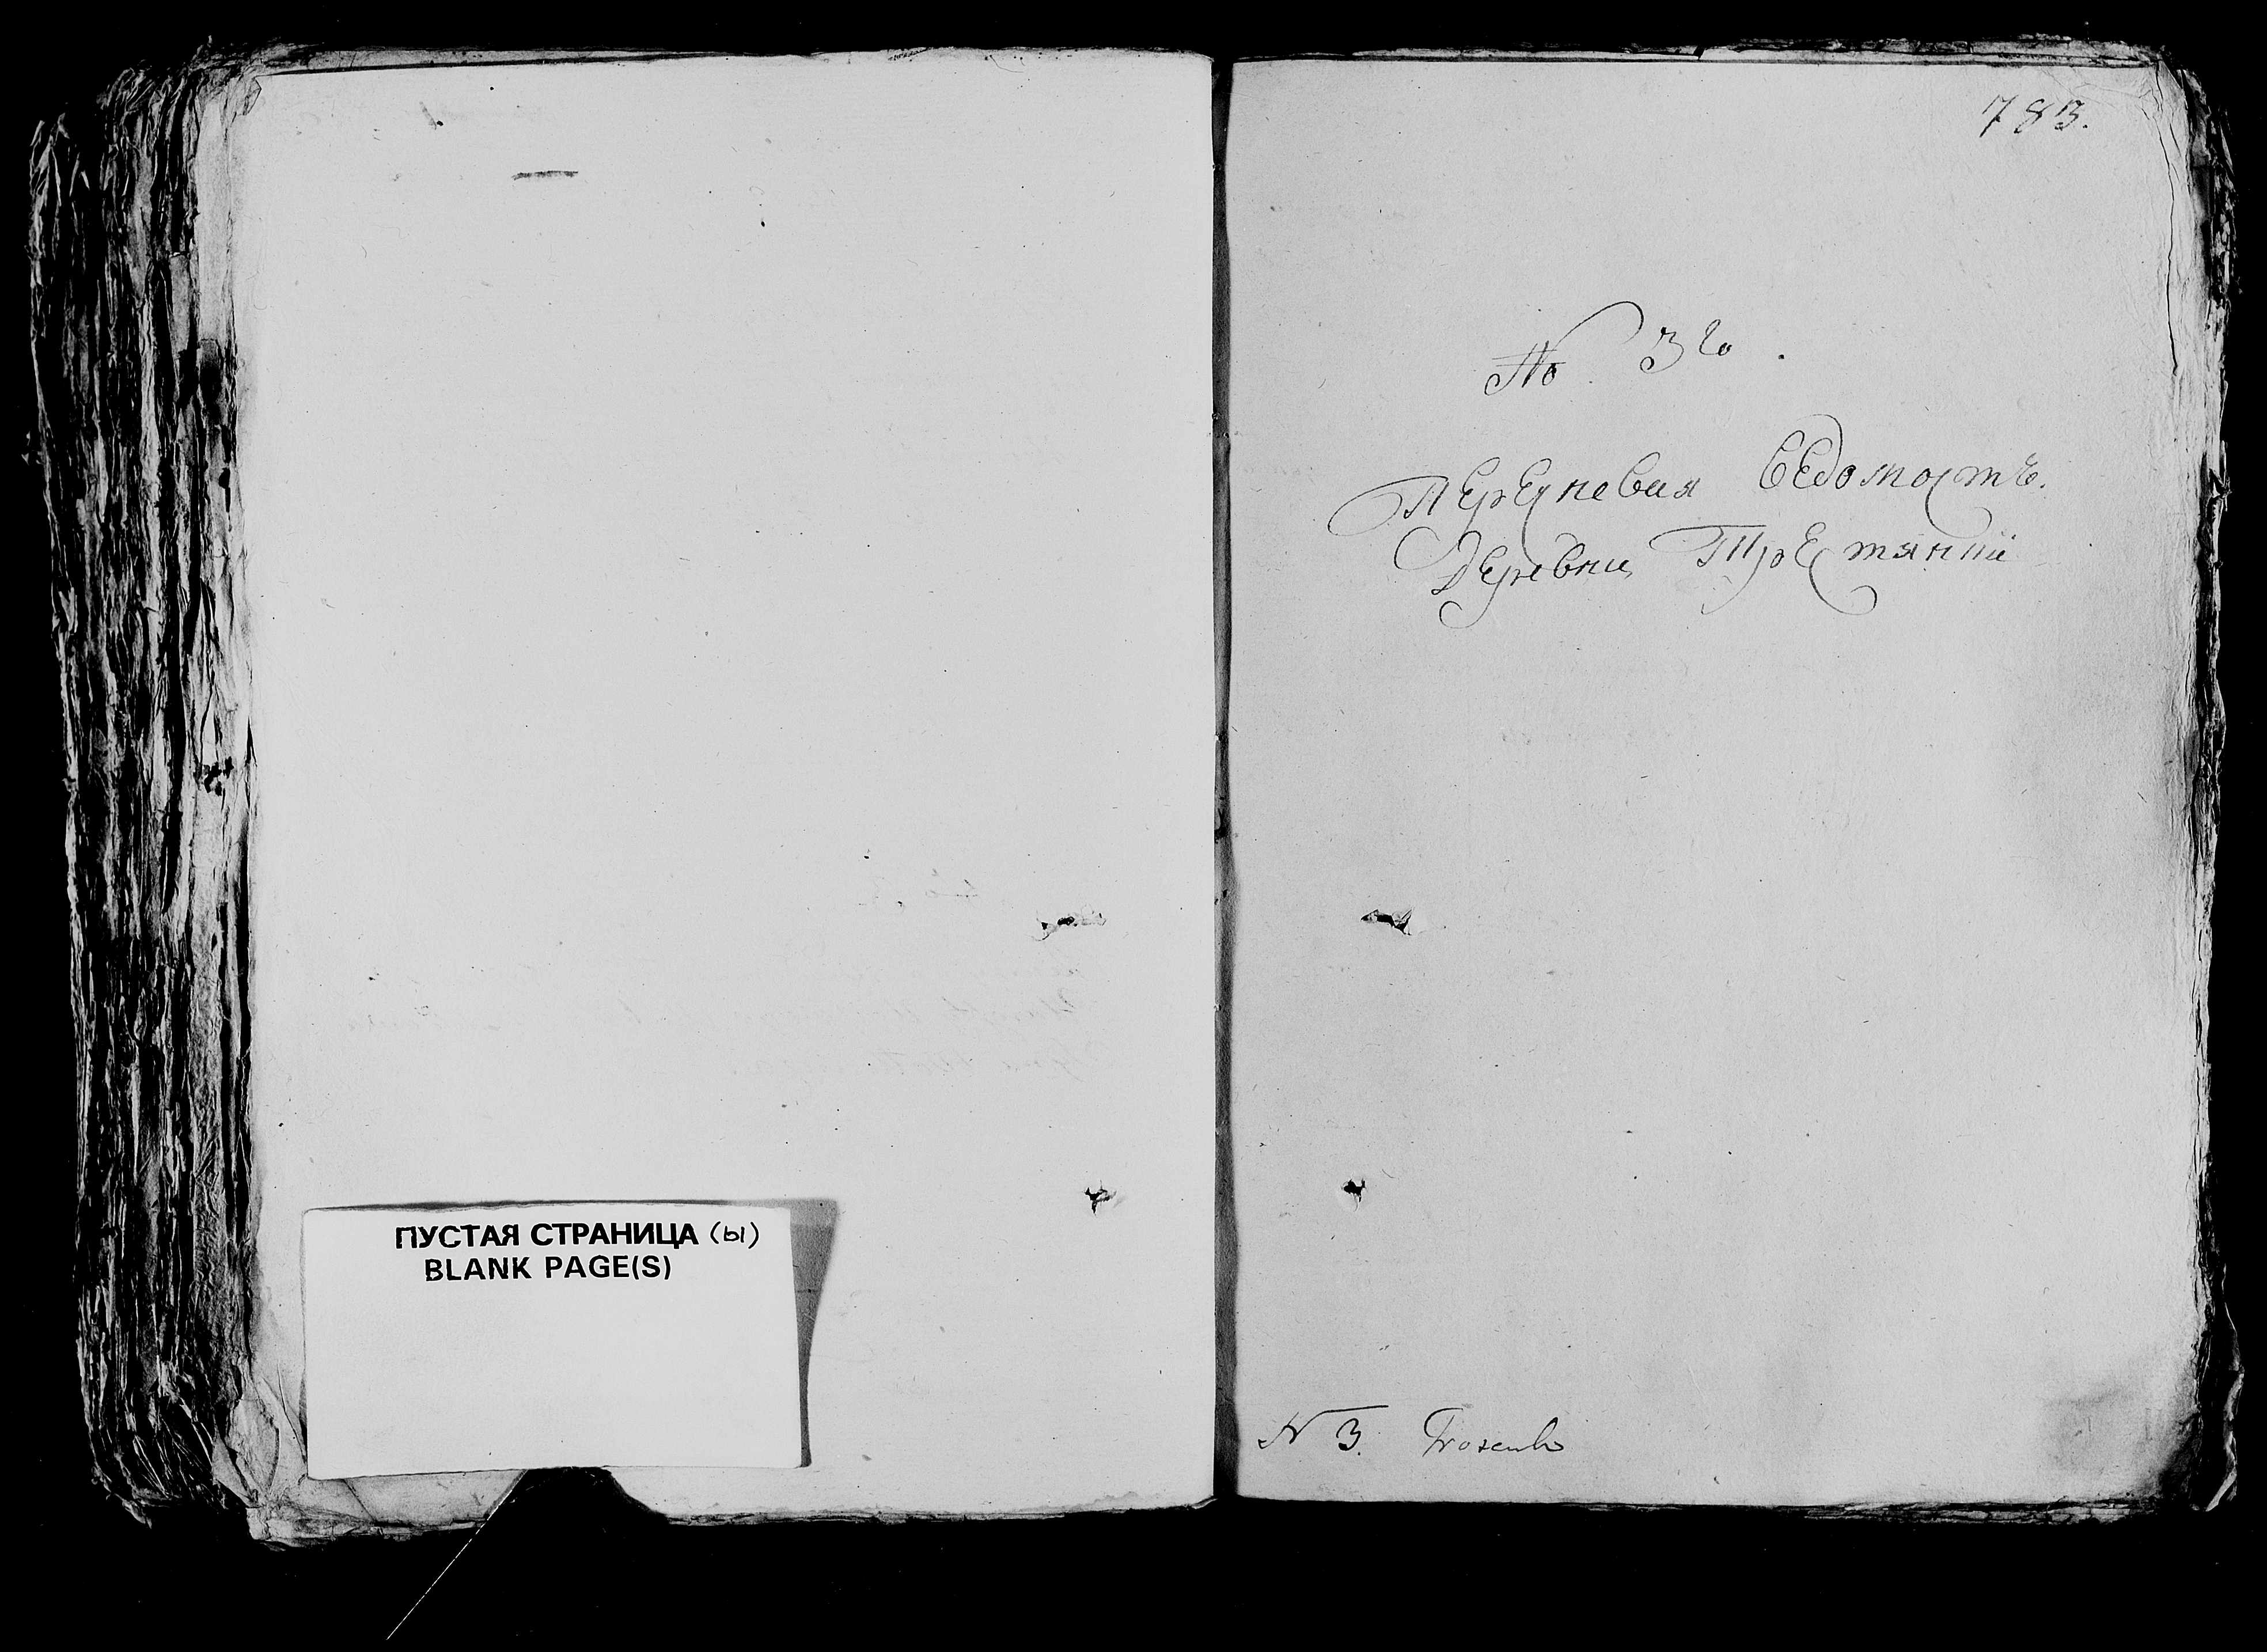 ПУСТАЯ СТРАНИЦА (ы)
BLANK PAGE(S)
783.
№ 3го.
Перечневая ведомость.
Деревни Тростянки
N 3.